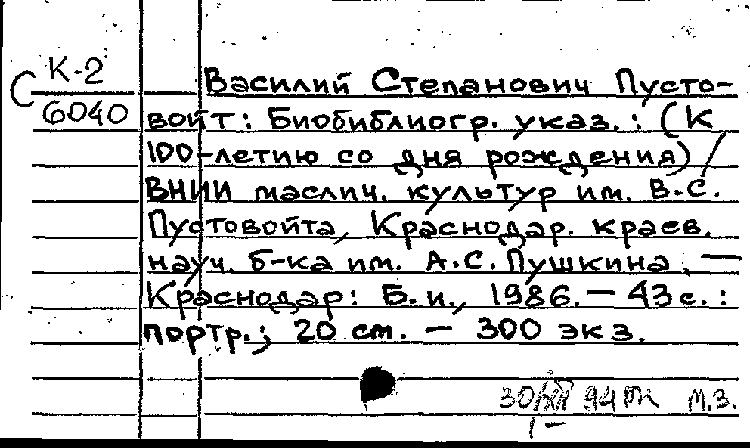 С К-2
6040
Василий Степанович Пусто-
войт: Биобиблиогр. указ.: (К
100-летию со дня рождения) /
ВНИИ маслич. культур им. В.С.
Пустовойта, Краснодар. краев.
науч. б-ка им. А.С. Пушкина. —
Краснодар: Б.и., 1986. — 43 с.:
портр.; 20 см. — 300 экз.
М.З.